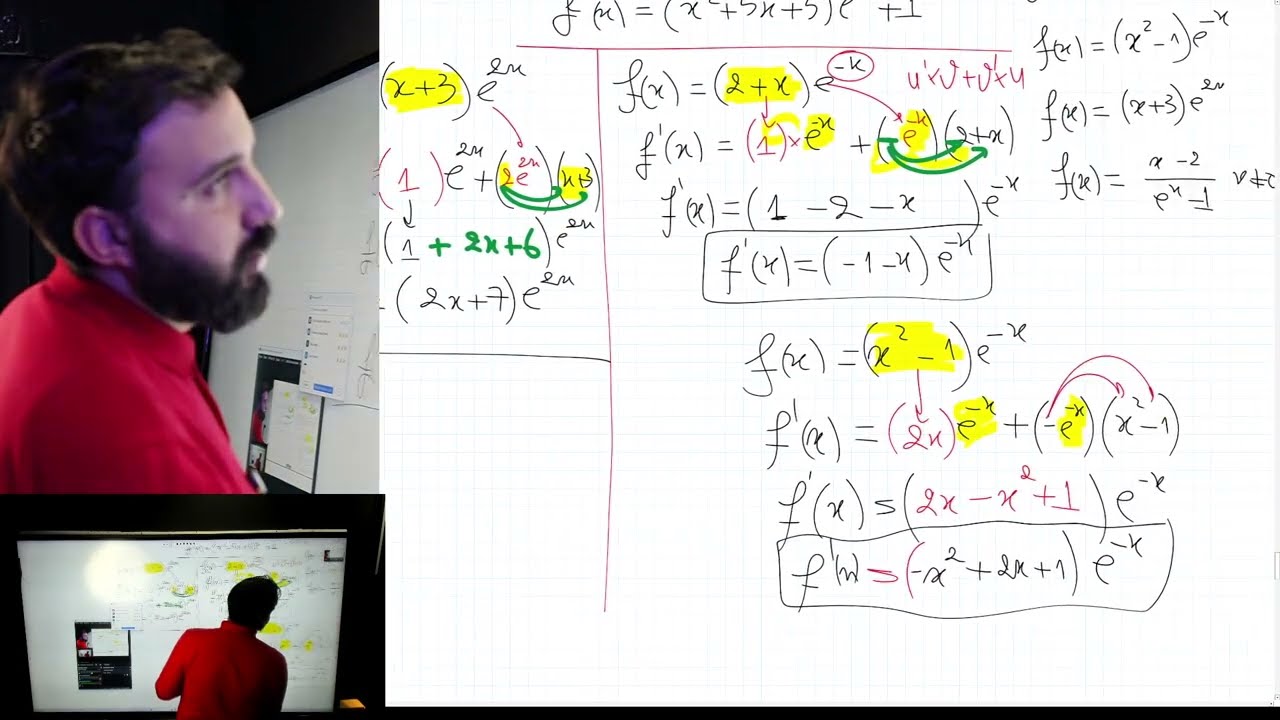 f'(x) = (x²+5x+5)e +1
(x+3)e²ˣ
(1)e²ˣ + (2e²ˣ)(x+3)
(1 + 2x+6)e²ˣ
(2x+7)e²ˣ
f(x) = (2+x)e⁻ˣ
u'×v+v'×u
f'(x) = (1)×e⁻ˣ + (-e⁻ˣ)(2+x)
f'(x) = (1 -2 -x)e⁻ˣ
f'(x) = (-1-x)e⁻ˣ
f(x) = (x²-1)e⁻ˣ
f'(x) = (2x)e⁻ˣ + (-e⁻ˣ)(x²-1)
f'(x) = (2x-x²+1)e⁻ˣ
f'(x) = (-x²+2x+1)e⁻ˣ
f(x) = (x²-1)e⁻ˣ
f(x) = (x+3)e²ˣ
f(x) = x-2 / eˣ-1